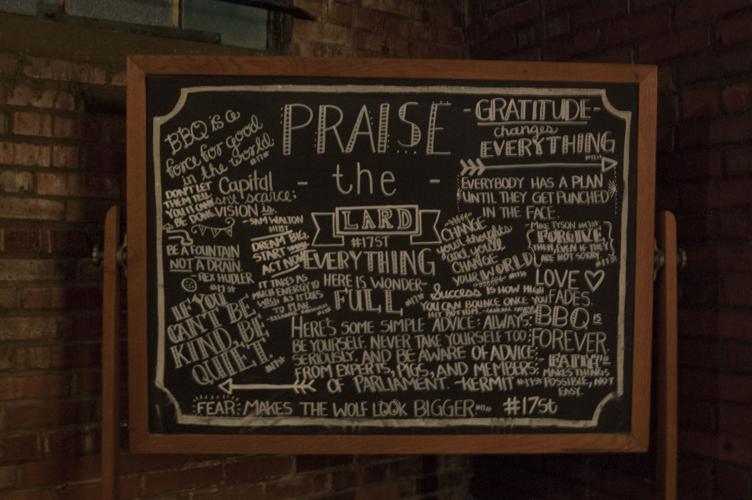 BBQ is a
force for good
in the world
#17st
PRAISE
- the -
LARD
#17ST
- GRATITUDE -
changes
EVERYTHING
EVERYBODY HAS A PLAN
UNTIL THEY GET PUNCHED
IN THE FACE.
- MIKE TYSON
DON'T LET
THEM TELL
YOU YOU CAN'T
BE DONE
Capital
isn't scarce;
VISION is.
- SAM WALTON
#17ST
BE A FOUNTAIN
NOT A DRAIN
- REX HUDLER
DREAM BIG.
START
ACT NOW
EVERYTHING
HERE IS WONDER-
FULL
IT TAKES AS
MUCH ENERGY TO
WISH AS IT DOES
TO PLAN.
CHANGE
your thoughts
and you'll
CHANGE
your WORLD
FORGIVE
NOT SORRY
Success IS HOW HIGH
YOU CAN BOUNCE ONCE YOU
HIT BOTTOM.
LOVE ♡
FADES.
BBQ IS
FOREVER.
IF YOU
CAN'T BE
KIND, BE
QUIET.
HERE'S SOME SIMPLE ADVICE: ALWAYS
BE YOURSELF. NEVER TAKE YOURSELF TOO
SERIOUSLY. AND BE AWARE OF ADVICE
FROM EXPERTS, PIGS, AND MEMBERS
OF PARLIAMENT. - KERMIT
FAITH
MAKES THINGS
POSSIBLE, NOT
EASY.
FEAR MAKES THE WOLF LOOK BIGGER
#17st